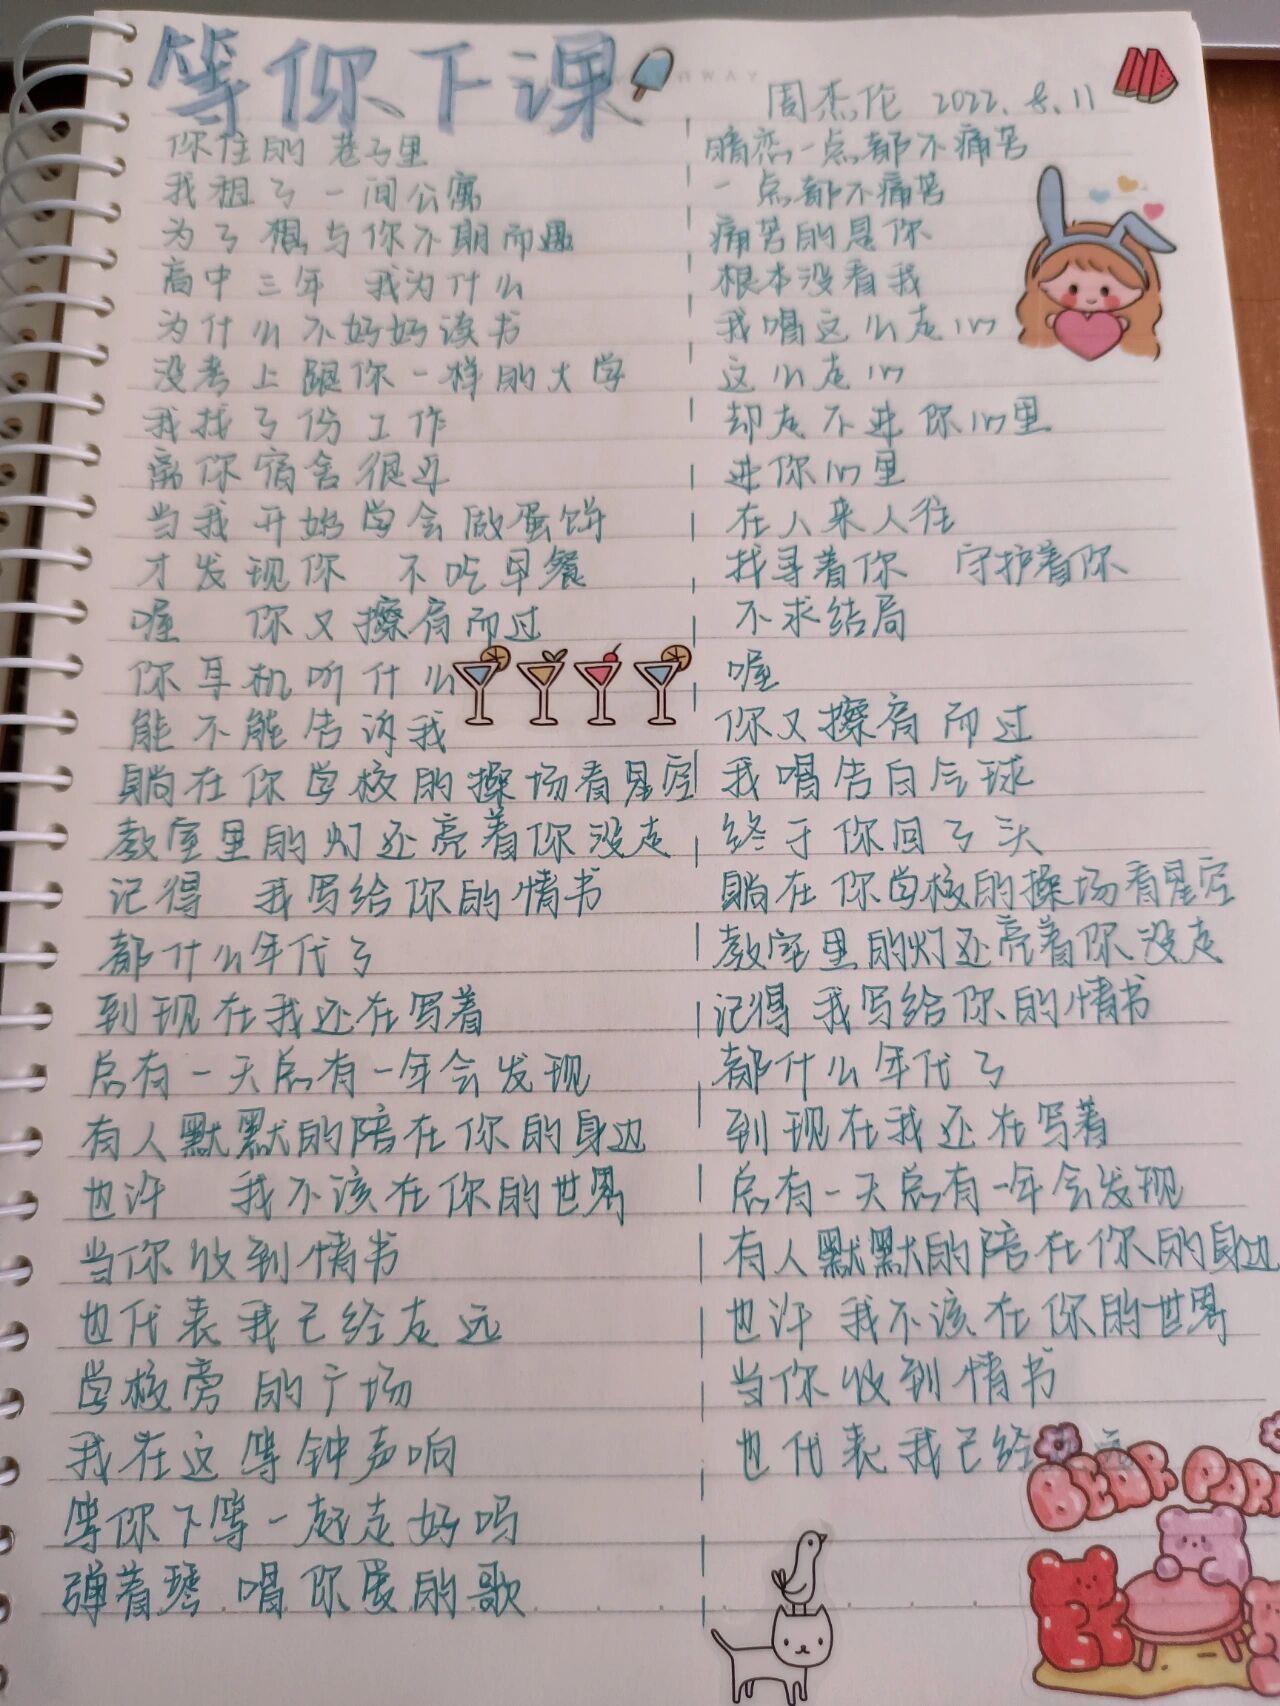 等你下课
周杰伦 2022.8.11
你住的 巷子里
我租了一间公寓
为了想与你不期而遇
高中三年 我为什么
为什么不好好读书
没考上跟你一样的大学
我找了份工作
离你宿舍很近
当我开始学会做蛋饼
才发现你 不吃早餐
喔 你又擦肩而过
你耳机听什么
能不能告诉我
躺在你学校的操场看星空
教室里的灯还亮着你没走
记得 我写给你的情书
都什么年代了
到现在我还在写着
总有一天总有一年会发现
有人默默的陪在你的身边
也许 我不该在你的世界
当你收到情书
也代表我已经走远
学校旁的广场
我在这等钟声响
等你下等一起走好吗
弹着琴 唱你爱的歌
暗恋一点都不痛苦
一点都不痛苦
痛苦的是你
根本没看我
我唱这么走心
这么走心
却走不进你心里
进你心里
在人来人往
找寻着你 守护着你
不求结局
喔
你又擦肩而过
我唱告白气球
终于你回了头
躺在你学校的操场看星空
教室里的灯还亮着你没走
记得 我写给你的情书
都什么年代了
到现在我还在写着
总有一天总有一年会发现
有人默默的陪在你的身边
也许 我不该在你的世界
当你收到情书
也代表我已经走远
BEAR